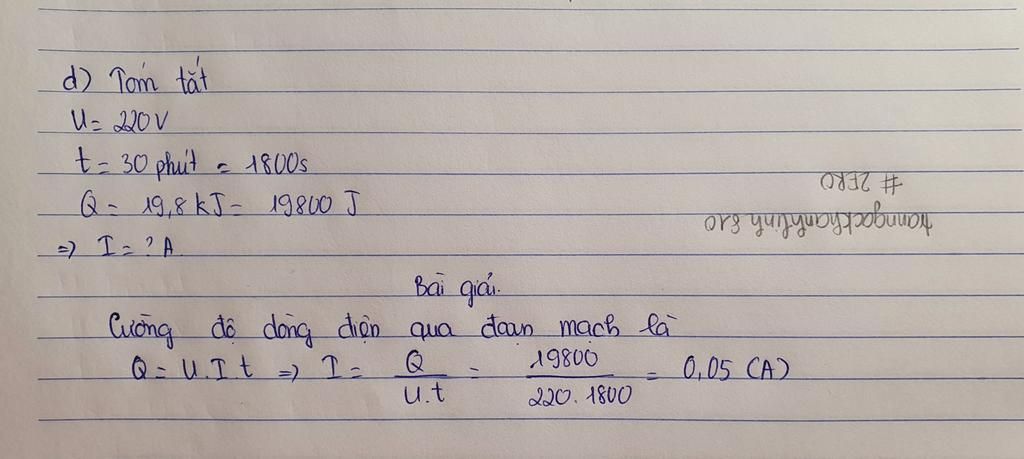 d) Tóm tắt
U = 220V
t = 30 phút = 1800s
Q = 19,8 kJ = 19800 J
=> I = ? A
# ZERO
tranngockhanhlinh 810
Bài giải.
Cường độ dòng điện qua đoạn mạch là
Q = U.I.t => I = Q / U.t = 19800 / 220.1800 = 0,05 (A)